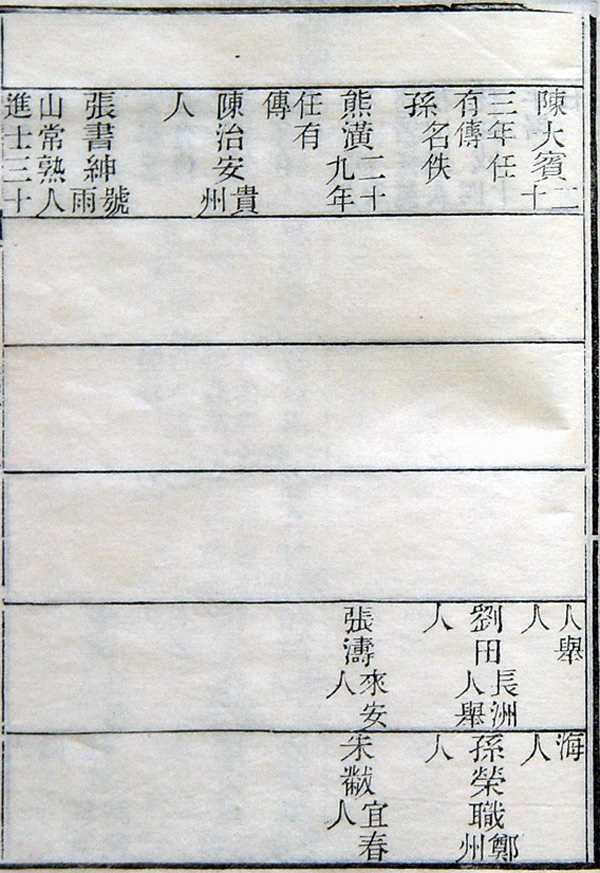 陳大賓二十
三年任
有傳
孫名佚
熊潢二十九年
任有
傳
陳治安貴州
人
張書紳號雨
山常熟人
進士三十
人舉
人
劉田長洲人舉
人
張濤來安人
海
人
孫榮職鄭州
人
朱黻宜春人